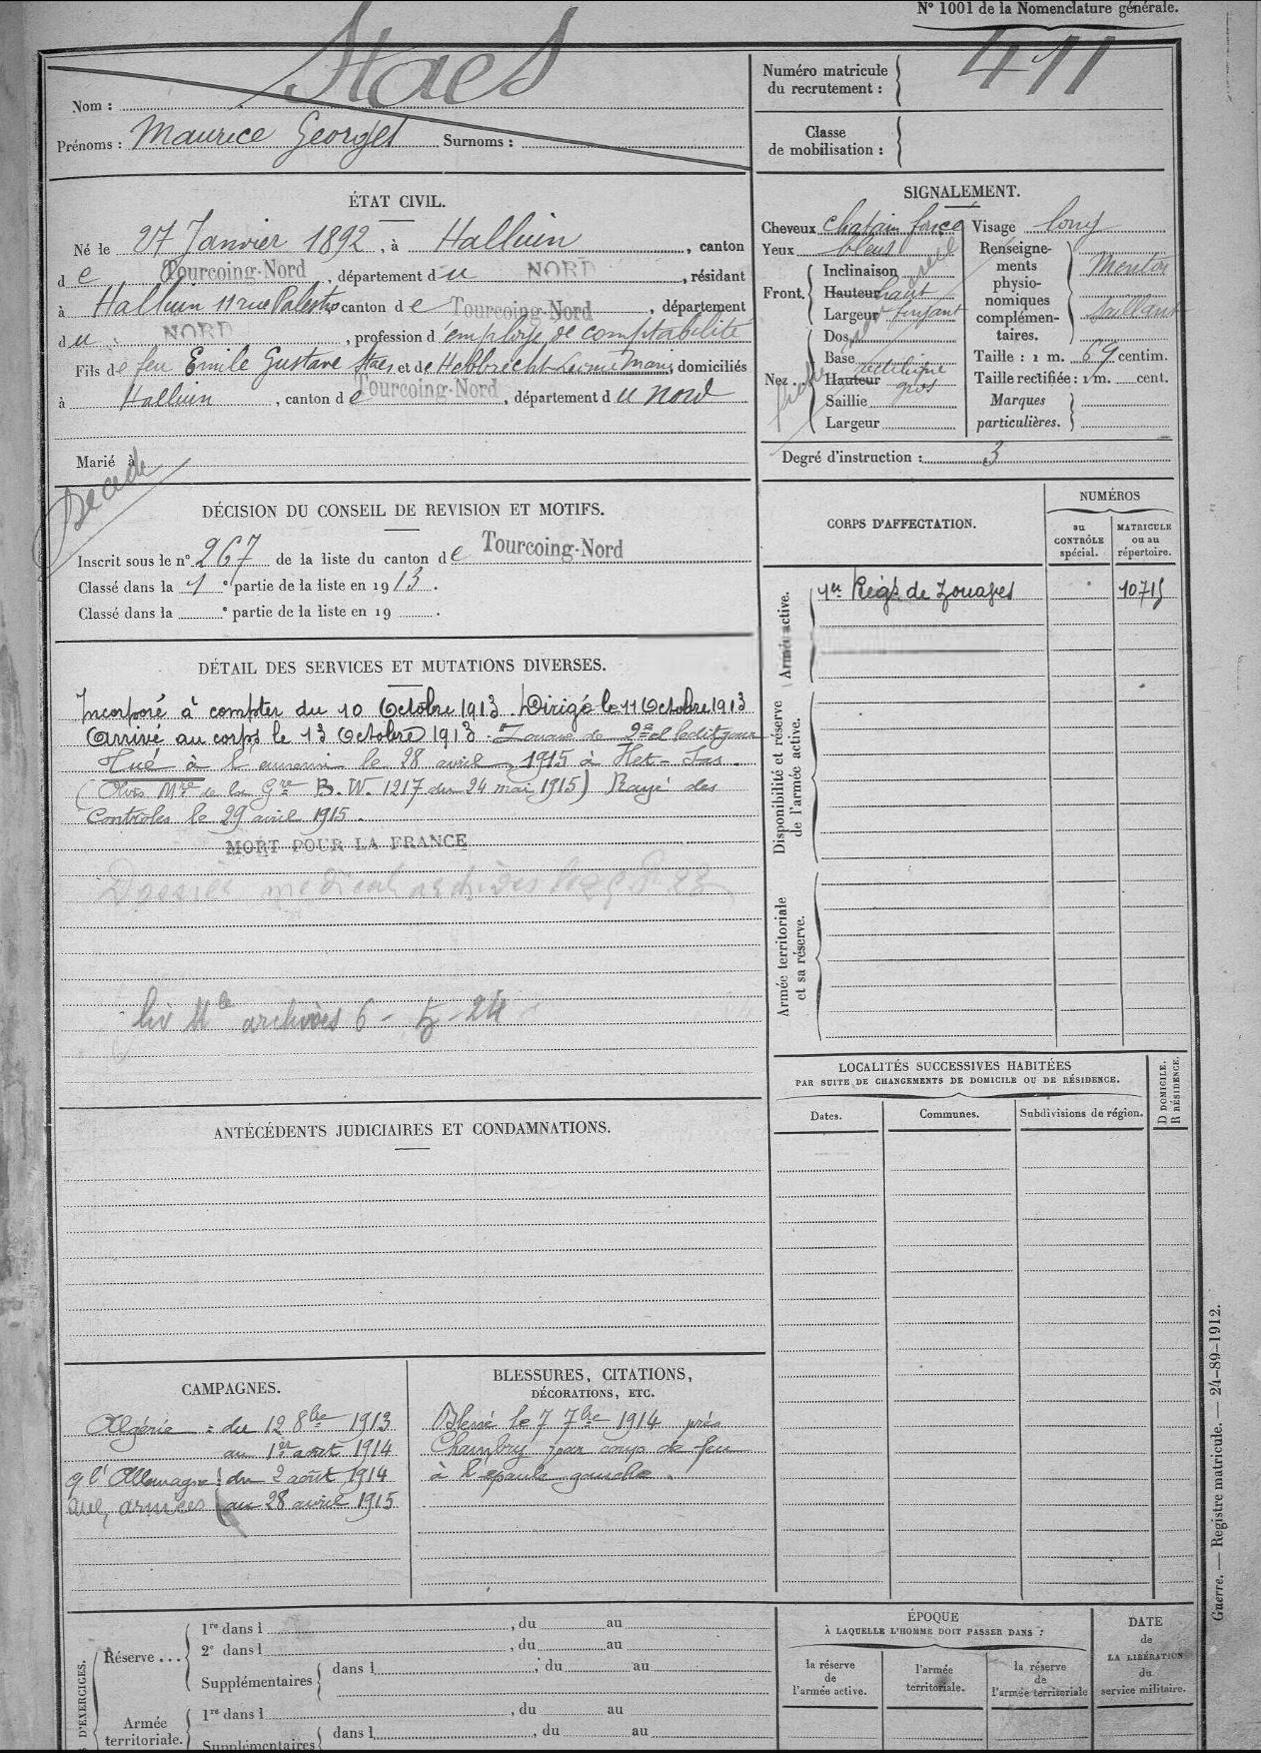 N° 1001 de la Nomenclature générale.
Nom : Staes
Prénoms : Maurice Georges Surnoms :
Numéro matricule du recrutement : 411
Classe de mobilisation :
ÉTAT CIVIL.
Né le 27 Janvier 1892, à Halluin, canton
de Tourcoing-Nord, département du NORD, résidant
à Halluin 11 rue Palestro canton de Tourcoing-Nord, département
du NORD, profession d'employé de comptabilité
Fils de feu Emile Gustave Staes et de Hebbrecht domiciliés
à Halluin, canton de Tourcoing-Nord, département du Nord
Marié à
Décédé
SIGNALEMENT.
Cheveux chatain foncé Visage long
Yeux bleus
Front. Inclinaison
Hauteur haut
Largeur fuyant
Nez. Dos
Base rectiligne
Hauteur gros
Saillie
Largeur
Renseignements physionomiques complémentaires. Menton saillant
Taille : 1 m. 69 centim.
Taille rectifiée : 1 m. cent.
Marques particulières.
Degré d'instruction : 3
DÉCISION DU CONSEIL DE REVISION ET MOTIFS.
Inscrit sous le n° 267 de la liste du canton de Tourcoing-Nord
Classé dans la 1e partie de la liste en 1913.
Classé dans la e partie de la liste en 19 .
CORPS D'AFFECTATION.
NUMÉROS
au CONTRÔLE spécial.
MATRICULE ou au répertoire.
Armée active.
1er Régt de Zouaves 10715
Disponibilité et réserve de l'armée active.
Armée territoriale et sa réserve.
DÉTAIL DES SERVICES ET MUTATIONS DIVERSES.
Incorporé à compter du 10 Octobre 1913. Dirigé le 11 Octobre 1913
Arrivé au corps le 13 Octobre 1913. Zouave de 2e cl ledit jour
Tué à l'ennemi le 28 avril 1915 à Het-Sas.
(Avis Mre de la Gre B.W. 1217 du 24 mai 1915) Rayé des
Contrôles le 29 avril 1915.
MORT POUR LA FRANCE
Dossier médical archives
liv Mle archives 6-5-24
LOCALITÉS SUCCESSIVES HABITÉES
PAR SUITE DE CHANGEMENTS DE DOMICILE OU DE RÉSIDENCE.
Dates. Communes. Subdivisions de région.
D DOMICILE. R RÉSIDENCE.
ANTÉCÉDENTS JUDICIAIRES ET CONDAMNATIONS.
CAMPAGNES.
Algérie : du 12 8bre 1913
au 1er août 1914
C l'Allemagne : du 2 août 1914
aux armées au 28 avril 1915
BLESSURES, CITATIONS,
DÉCORATIONS, ETC.
Blessé le 7 7bre 1914 près
Chambry par coup de feu
à l'épaule gauche.
Guerre. — Registre matricule. — 24-89-1912.
D'EXERCICES.
Réserve ... 1re dans l , du au
2e dans l , du au
Supplémentaires dans l , du au
Armée territoriale. 1re dans l , du au
Supplémentaires dans l , du au
ÉPOQUE
À LAQUELLE L'HOMME DOIT PASSER DANS :
la réserve de l'armée active.
l'armée territoriale.
la réserve de l'armée territoriale
DATE
de
LA LIBÉRATION
du
service militaire.